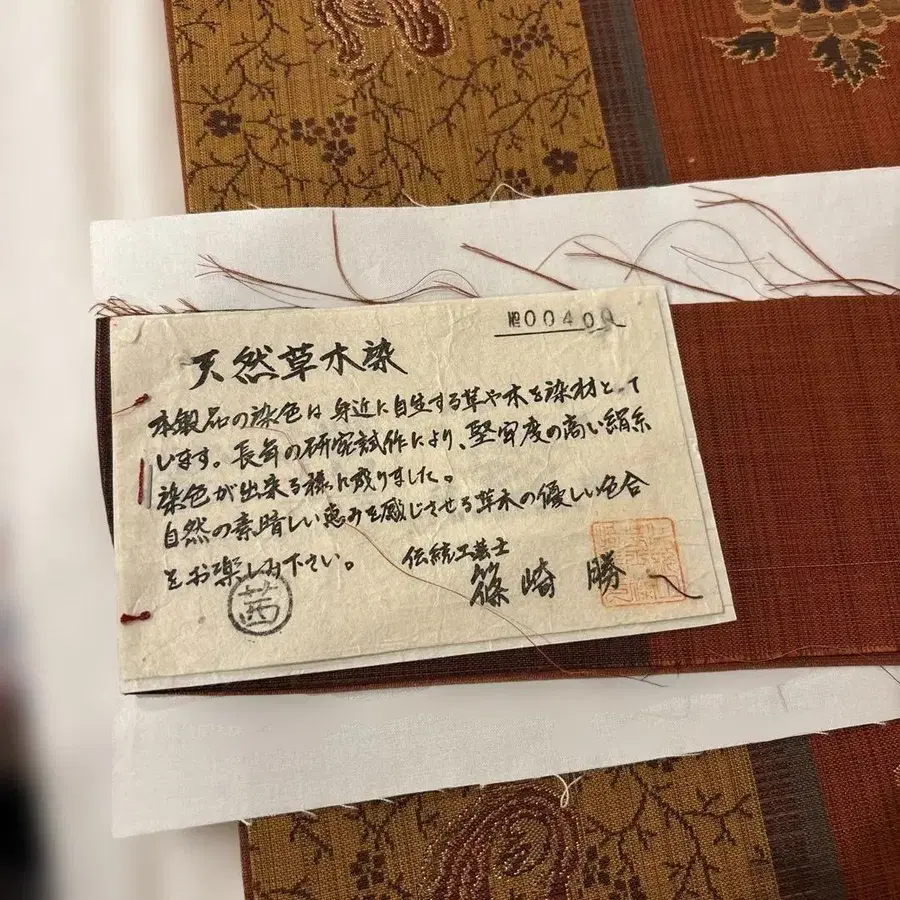 №00400
天然草木染
本製品の染色は身近に自生する草や木を染材として
します。長年の研究試作により、堅牢度の高い絹糸
染色が出来る様に成りました。
自然の素晴しい恵みを感じさせる草木の優しい色合
をお楽しみ下さい。
伝統工芸士
篠崎 勝
茜